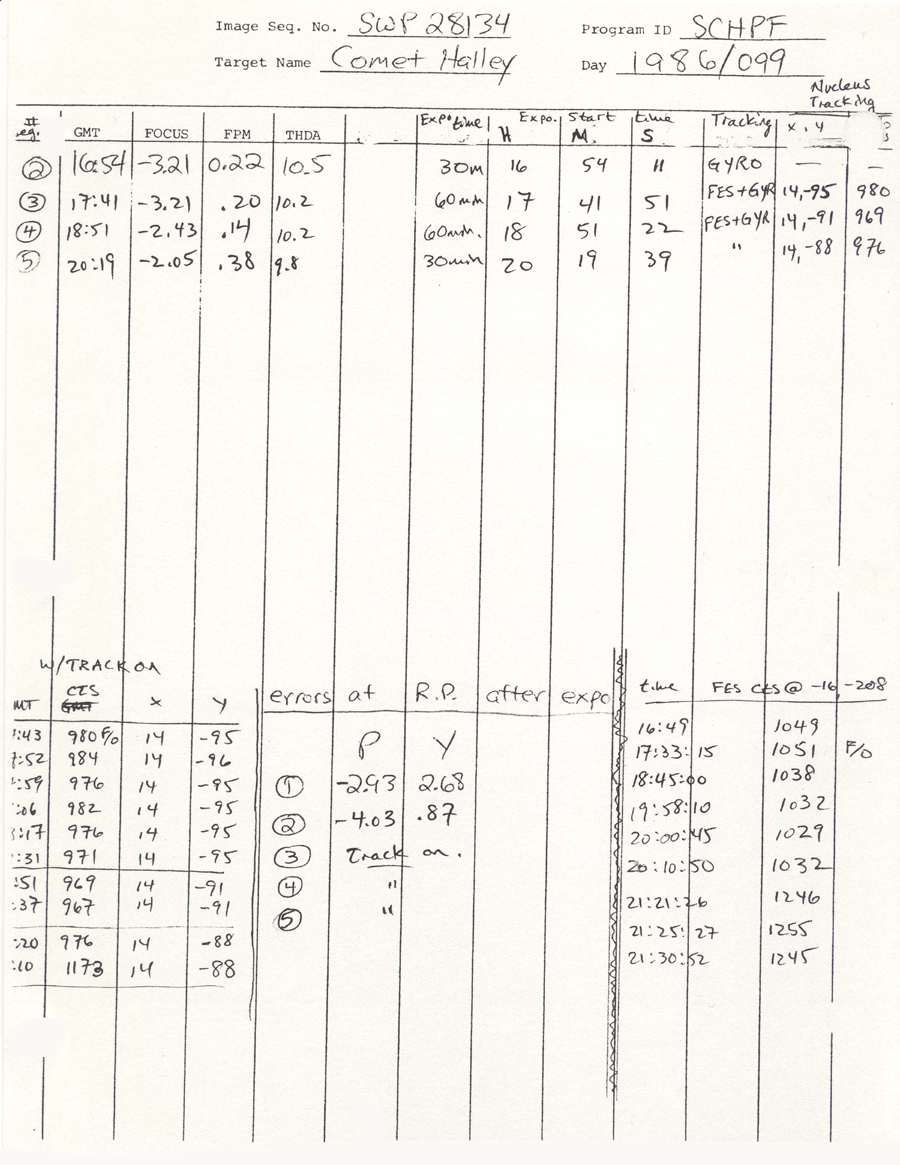 Image Seq. No. SWP 28134 Program ID SCHPF
Target Name Comet Halley Day 1986/099
Nucleus
Tracking
# Expo time Expo. Start time Tracking x, y
eg. GMT FOCUS FPM THDA H M. S
② 16:54 -3.21 0.22 10.5 30m 16 54 11 GYRO — —
③ 17:41 -3.21 .20 10.2 60min 17 41 51 FES+GYR 14,-95 980
④ 18:51 -2.43 .14 10.2 60min. 18 51 22 FES+GYR 14,-91 969
⑤ 20:19 -2.05 .38 9.8 30min 20 19 39 " 14,-88 976
W/TRACK ON
MT CTS x y
:43 980 F/O 14 -95
:52 984 14 -96
:59 976 14 -95
:06 982 14 -95
:17 976 14 -95
:31 971 14 -95
:51 969 14 -91
:37 967 14 -91
:20 976 14 -88
:10 1173 14 -88
errors at R.P. after expo
P Y
① -2.93 2.68
② -4.03 .87
③ Track on.
④ "
⑤ "
time FES CTS @ -16, -208
16:49 1049
17:33:15 1051 F/O
18:45:00 1038
19:58:10 1032
20:00:45 1029
20:10:50 1032
21:21:26 1246
21:25:27 1255
21:30:52 1245